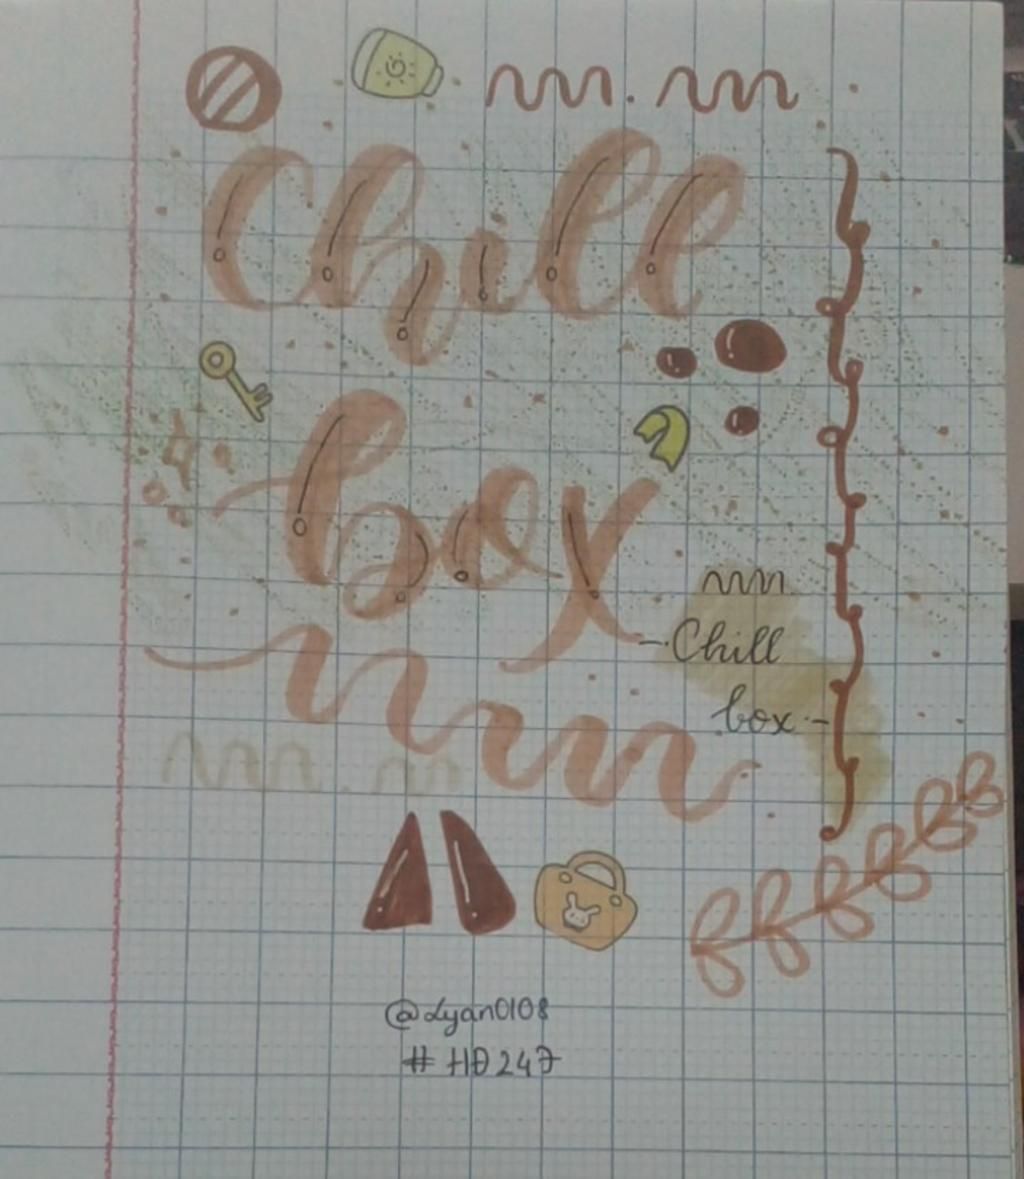 Chill
box
Chill
box
@Lyan0108
#HD247